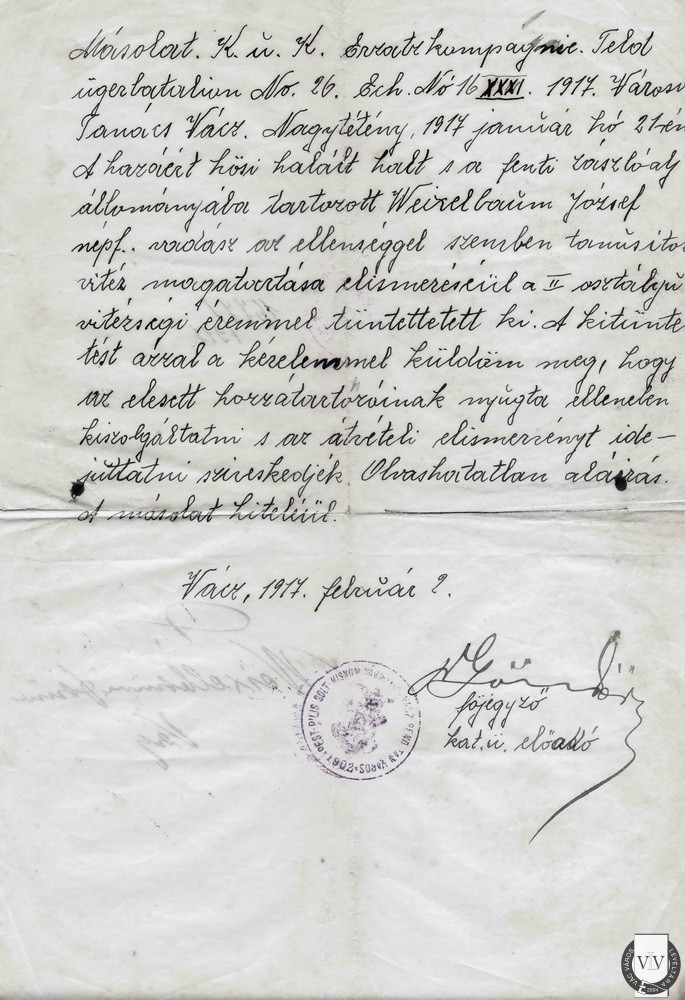 Másolat. K. u. K. Erzatzkompagnie. Feld
ügerbatalion No. 26. Ech. Nó 16 XXXI. 1917. Városi
Tanács Vácz. Nagytétény, 1917 január hó 21-én
A hazáért hősi halált halt s a fenti zászlóalj
állományába tartozott Weixelbaum József
népf. vadász az ellenséggel szemben tanusitott
vitéz magatartása elismeréséül a II osztályu
vitézségi éremmel tüntettetett ki. A kitünte
tést azzal a kérelemmel küldöm meg, hogy
az elesett hozzátartozóinak nyugta ellenében
kiszolgáltatni s az átvételi elismervényt ide-
juttatni sziveskedjék. Olvashatatlan aláirás.
A másolat hiteléül.
Vácz, 1917. február 2.
főjegyző
kat. ü. előadó
PEST-PILIS-SOLT-KISKUN
REND. TAN. VÁROS
1902
VÁC VÁROS LEVÉLTÁRA
VVL
2004